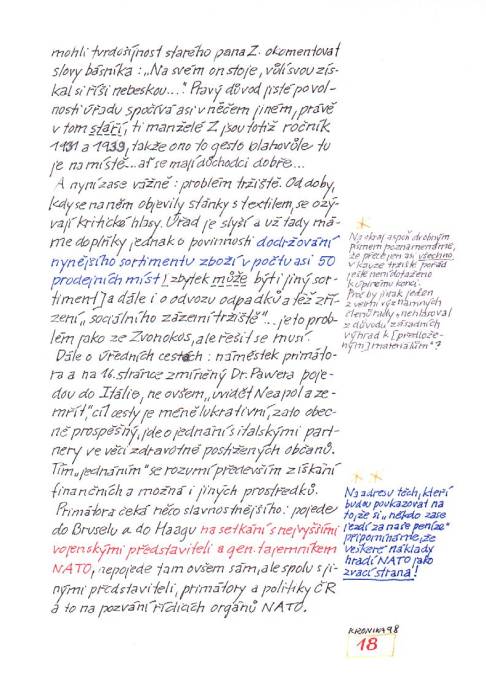 mohli tvrdošíjnost starého pana Z. okomentovat
slovy básníka: „Na svém on stoje, vůlí svou zís-
kal si říši nebeskou..." Pravý důvod jisté povol-
nosti úřadu spočívá asi v něčem jiném, právě
v tom stáří, ti manželé Z jsou totiž ročník
1931 a 1933, takže ono to gesto blahovůle tu
je na místě... ať se mají důchodci dobře...
A nyní zase vážně: problém tržiště. Od doby,
kdy se na něm objevily stánky s textilem, se ozý-
vají kritické hlasy. Úřad je slyší a už tady má-
me doplňky jednak o povinnosti dodržování
nynějšího sortimentu zboží v počtu asi 50
prodejních míst [zbytek může být i jiný sor-
timent] a dále i o odvozu odpadků a též zří-
zení „sociálního zázemí tržiště"... je to prob-
lém jako ze Zvonokos, ale řešit se musí.
Dále o úředních cestách: náměstek primáto-
ra a na 16. stránce zmíněný Dr. Pawera poje-
dou do Itálie, ne ovšem „uvidět Neapol a ze-
mřít", cíl cesty je méně lukrativní, zato obec-
ně prospěšný, jde o jednání s italskými part-
nery ve věci zdravotně postižených občanů.
Tím „jednáním" se rozumí především získání
finančních a možná i jiných prostředků.
Primátora čeká něco slavnostnějšího: pojede
do Bruselu a do Haagu na setkání s nejvyššími
vojenskými představiteli a gen. tajemníkem
NATO, nepojede tam ovšem sám, ale spolu s ji-
nými představiteli, primátory a politiky ČR
a to na pozvání řídících orgánů NATO.
*
Na okraj aspoň drobným
písmem poznamenejme,
že přece jen asi všechno
v kauze tržiště není
ještě není dotaženo
k úplnému konci.
Proč by jinak jeden
z velmi významných
členů rady „nehlasoval
z důvodu zásadních
výhrad k [předlože-
ným] materiálům"?
* *
Na adresu těch, kteří
budou poukazovat na
to, že si „někdo zase
jezdí za naše peníze"
připomínáme, že
veškeré náklady
hradí NATO jako
zvací strana!
KRONIKA 98
18